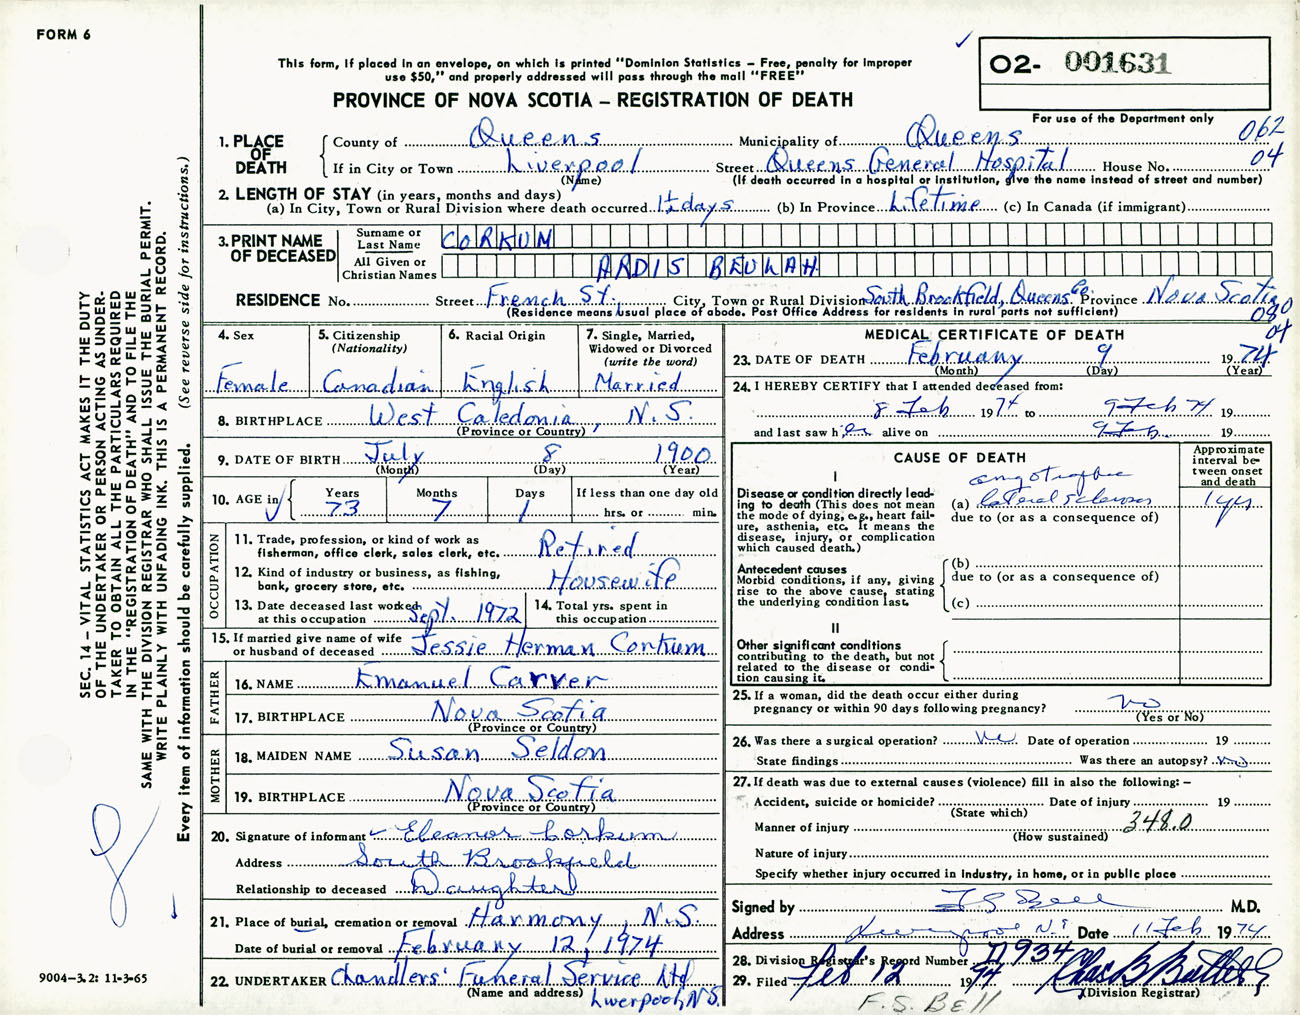 FORM 6
This form, if placed in an envelope, on which is printed "Dominion Statistics – Free, penalty for improper
use $50," and properly addressed will pass through the mail "FREE"
PROVINCE OF NOVA SCOTIA – REGISTRATION OF DEATH
02- 001631
For use of the Department only
062
04
1. PLACE OF DEATH County of Queens Municipality of Queens
If in City or Town Liverpool Street Queens General Hospital House No.
(Name) (If death occurred in a hospital or institution, give the name instead of street and number)
2. LENGTH OF STAY (in years, months and days)
(a) In City, Town or Rural Division where death occurred 1½ days (b) In Province Lifetime (c) In Canada (if immigrant)
3. PRINT NAME OF DECEASED Surname or Last Name CORKUM
All Given or Christian Names ARDIS BEULAH
RESIDENCE No. Street French St., City, Town or Rural Division South Brookfield, Queens Co. Province Nova Scotia
(Residence means usual place of abode. Post Office Address for residents in rural parts not sufficient)
080
04
4. Sex Female
5. Citizenship (Nationality) Canadian
6. Racial Origin English
7. Single, Married, Widowed or Divorced (write the word) Married
8. BIRTHPLACE West Caledonia, N.S.
(Province or Country)
9. DATE OF BIRTH July 8 1900
(Month) (Day) (Year)
10. AGE in Years 73 Months 7 Days 1 If less than one day old hrs. or min.
OCCUPATION
11. Trade, profession, or kind of work as fisherman, office clerk, sales clerk, etc. Retired
12. Kind of industry or business, as fishing, bank, grocery store, etc. Housewife
13. Date deceased last worked at this occupation Sept. 1972
14. Total yrs. spent in this occupation
15. If married give name of wife or husband of deceased Jessie Herman Corkum
FATHER
16. NAME Emanuel Carver
17. BIRTHPLACE Nova Scotia
(Province or Country)
MOTHER
18. MAIDEN NAME Susan Seldon
19. BIRTHPLACE Nova Scotia
(Province or Country)
20. Signature of informant Eleanor Corkum
Address South Brookfield
Relationship to deceased Daughter
21. Place of burial, cremation or removal Harmony, N.S.
Date of burial or removal February 12, 1974
22. UNDERTAKER Chandlers' Funeral Service Ltd
(Name and address) Liverpool, N.S.
MEDICAL CERTIFICATE OF DEATH
23. DATE OF DEATH February 9 1974
(Month) (Day) (Year)
24. I HEREBY CERTIFY that I attended deceased from:
8 Feb 1974 to 9 Feb 74 19
and last saw her alive on 9 Feb 19
CAUSE OF DEATH
Approximate interval between onset and death
I
Disease or condition directly leading to death (This does not mean the mode of dying, e.g., heart failure, asthenia, etc. It means the disease, injury, or complication which caused death.)
(a) amyotrophic lateral sclerosis 1 yr
due to (or as a consequence of)
Antecedent causes
Morbid conditions, if any, giving rise to the above cause, stating the underlying condition last.
(b)
due to (or as a consequence of)
(c)
II
Other significant conditions
contributing to the death, but not related to the disease or condition causing it.
25. If a woman, did the death occur either during pregnancy or within 90 days following pregnancy? no
(Yes or No)
26. Was there a surgical operation? no Date of operation 19
State findings Was there an autopsy? no
27. If death was due to external causes (violence) fill in also the following: –
Accident, suicide or homicide? Date of injury 19
(State which)
Manner of injury 348.0
(How sustained)
Nature of injury
Specify whether injury occurred in industry, in home, or in public place
Signed by F S Bell M.D.
Address Liverpool N.S Date 11 Feb 1974
28. Division Registrar's Record Number 934
29. Filed Feb 12 1974 Chas B Butler
(Division Registrar)
F.S. BELL
SEC. 14 – VITAL STATISTICS ACT MAKES IT THE DUTY
OF THE UNDERTAKER OR PERSON ACTING AS UNDER-
TAKER TO OBTAIN ALL THE PARTICULARS REQUIRED
IN THE "REGISTRATION OF DEATH" AND TO FILE THE
SAME WITH THE DIVISION REGISTRAR WHO SHALL ISSUE THE BURIAL PERMIT.
WRITE PLAINLY WITH UNFADING INK. THIS IS A PERMANENT RECORD.
Every item of information should be carefully supplied. (See reverse side for instructions.)
9004-3.2: 11-3-65